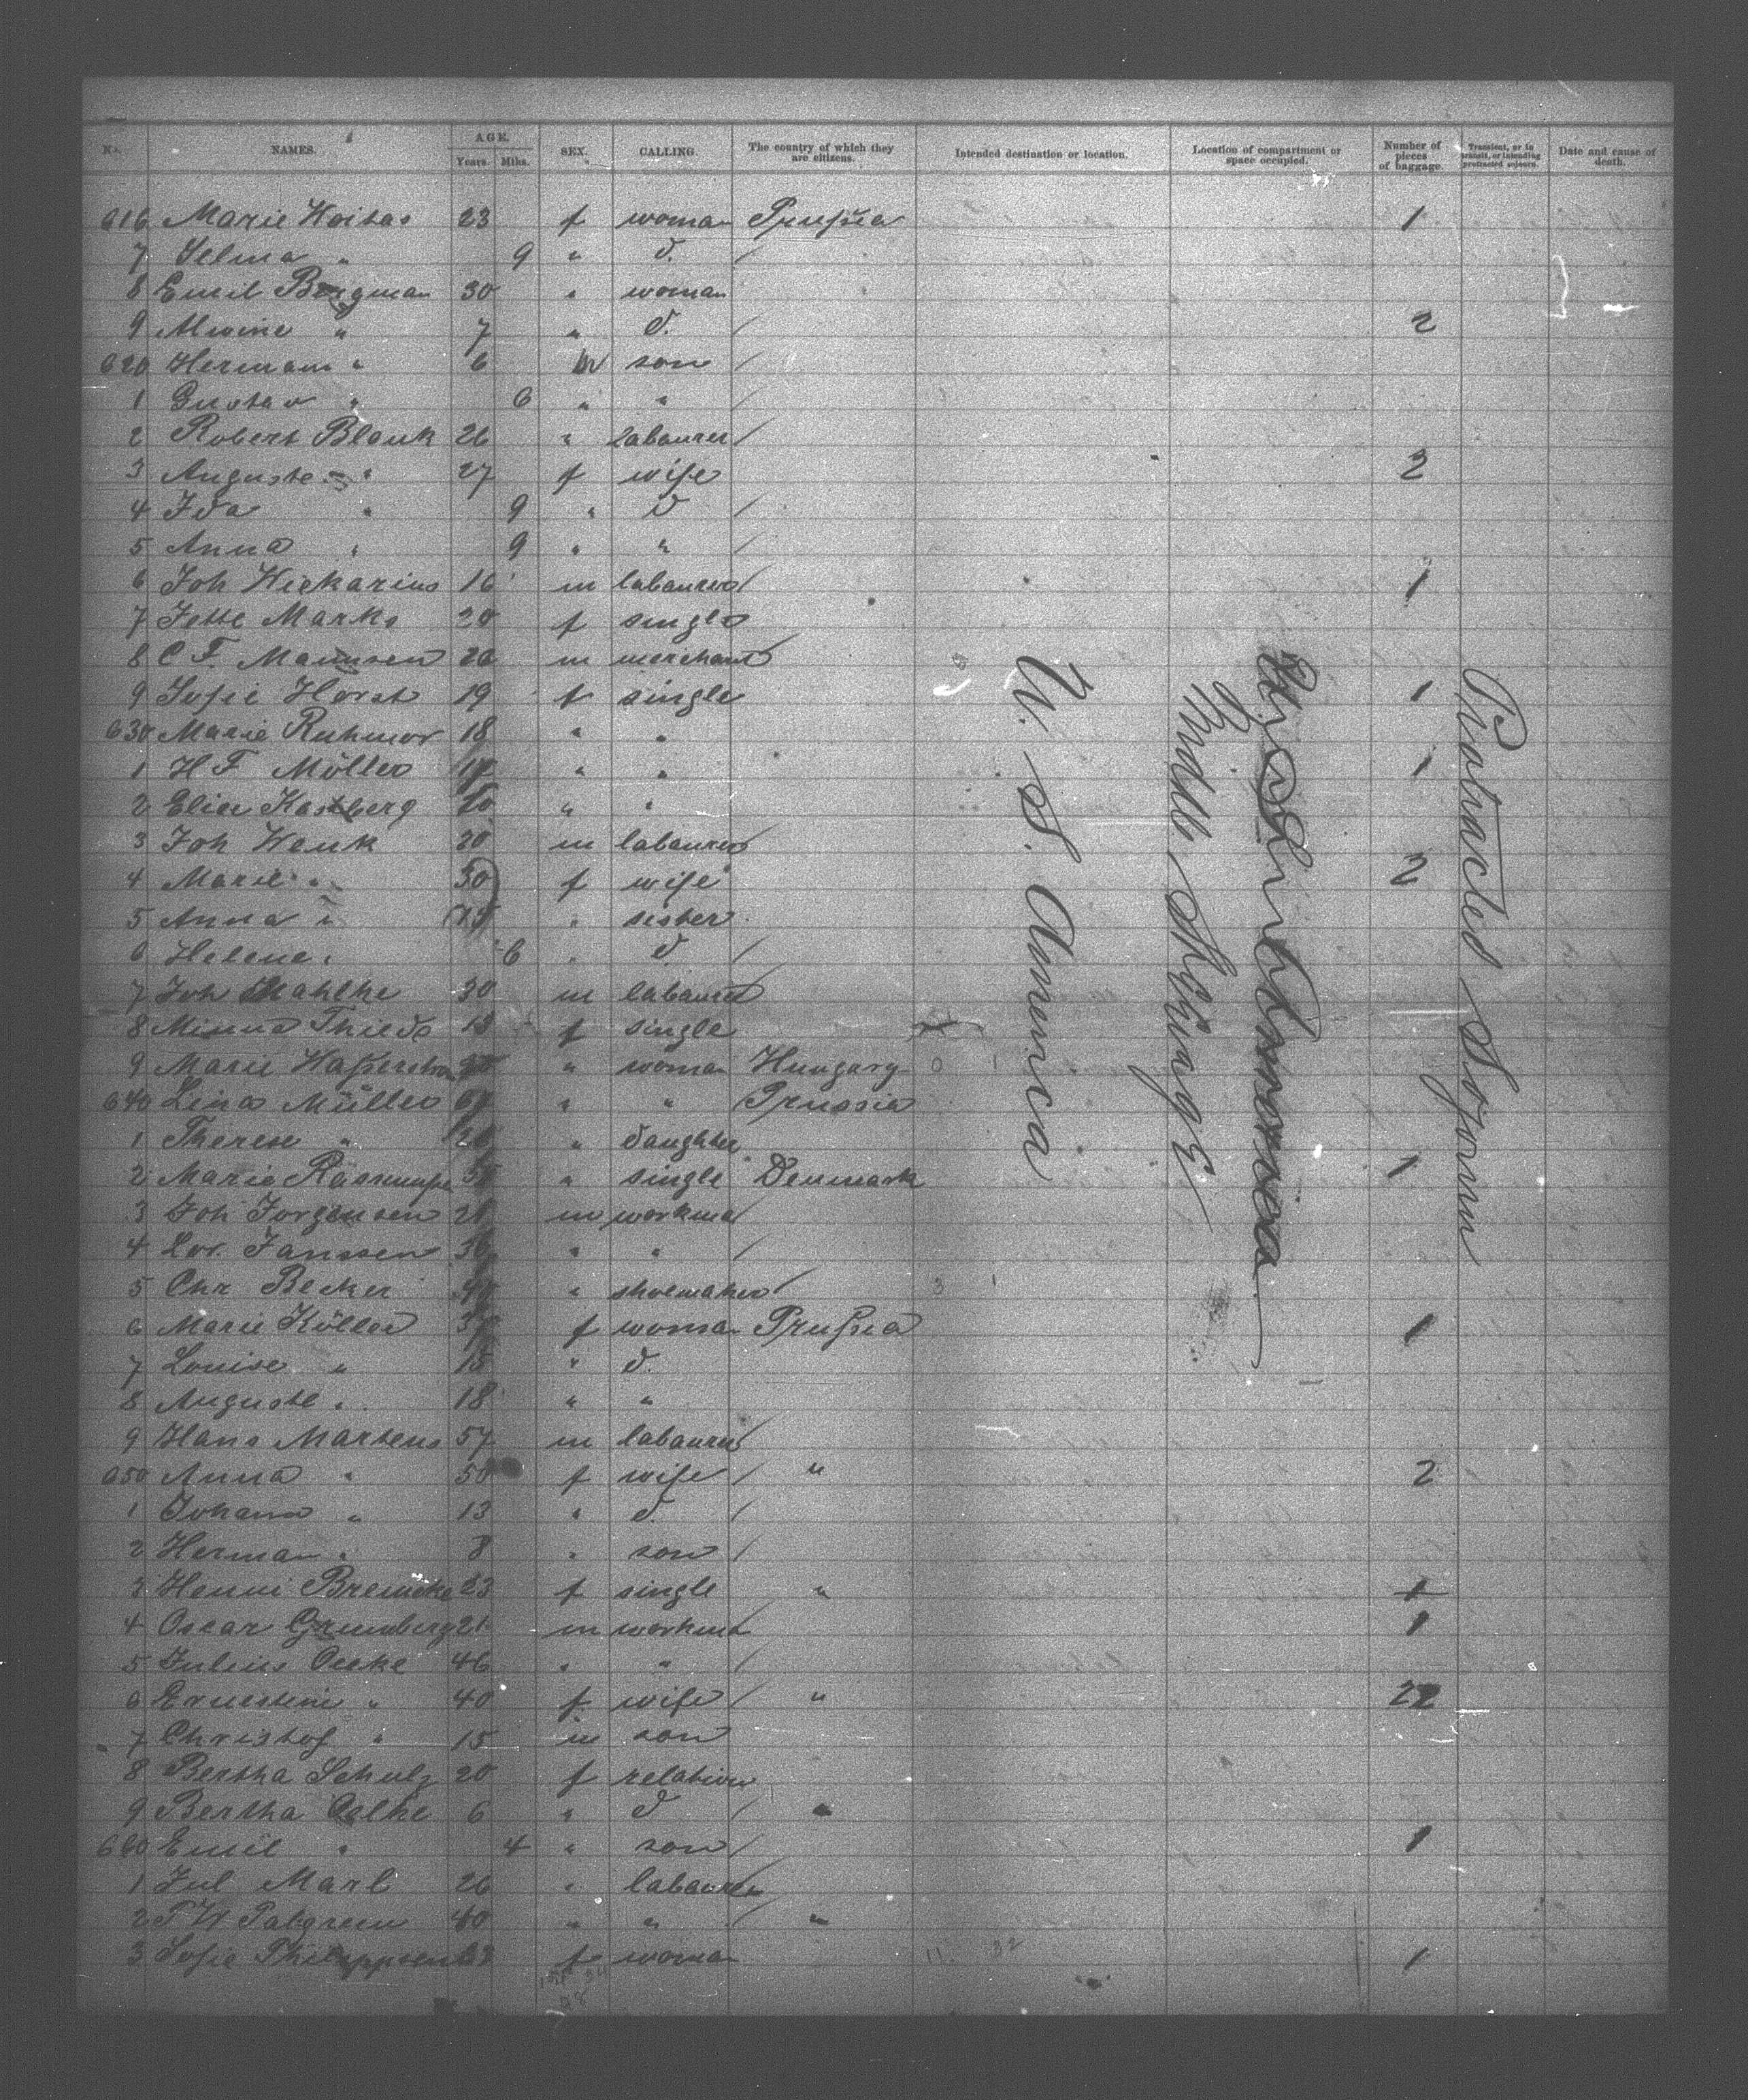 No. NAMES. AGE. Years. Mths. SEX. CALLING. The country of which they are citizens. Intended destination or location. Location of compartment or space occupied. Number of pieces of baggage. Transient, or in transit, or intending protracted sojourn. Date and cause of death.
616 Marie Woitas 23 f woman Prussia 1
7 Selma " 9 " d.
8 Emil Bergman 30 " woman
9 Alwine " 7 " d. 2
620 Herman " 6 m son
1 Gustav " 6 " "
2 Robert Blank 26 " labaurer
3 Auguste " 27 f wife 2
4 Ida " 9 " d
5 Anna " 9 " "
6 Joh Wickarius 16 m labaurer 1
7 Jette Marks 20 f single
8 C F. Mamsen 26 m merchant
9 Sofie Horst 19 f single 1
630 Marie Ruhmor 18 " "
1 H F Möller " " 1
2 Elise Kastberg " "
3 Joh Wenk 30 m labaurer
4 Marie " 30 f wife 2
5 Anna " 15 " sister
6 Helene " 6 " d.
7 Joh Mahlke 30 m labaurer
8 Minna Thiede 18 f single
9 Marie " woman Hungary
640 Lina Müller " " Prussia
1 Therese " " daughter
2 Marie " single Denmark 1
3 Joh Jorgensen m workma
4 Lor. Janssen " "
5 Chr Becker " shoemaker
6 Marie Köller f woman Prussia 1
7 Louise " 15 " d.
8 Auguste " 18 " "
9 Hans Martens 57 m labaurer
650 Anna " 50 f wife " 2
1 Johana " 13 " d.
2 Herman " 8 " son
3 Henni Bremcke 23 f single " 1
4 Oscar Grumberg 21 m workma 1
5 Julius Oelke 46 " "
6 Ernestine " 40 f wife " 2
7 Christof " 15 m son
8 Bertha Schulz 20 f relation
9 Bertha Oelke 6 " d "
660 Emil " 4 " son 1
1 Jul Marl 26 " labaurer
2 F W Palgreen 40 " " "
3 Sofie Philippsen f woman 1
U. S. America
Middle Steerage
Protracted Sojourn